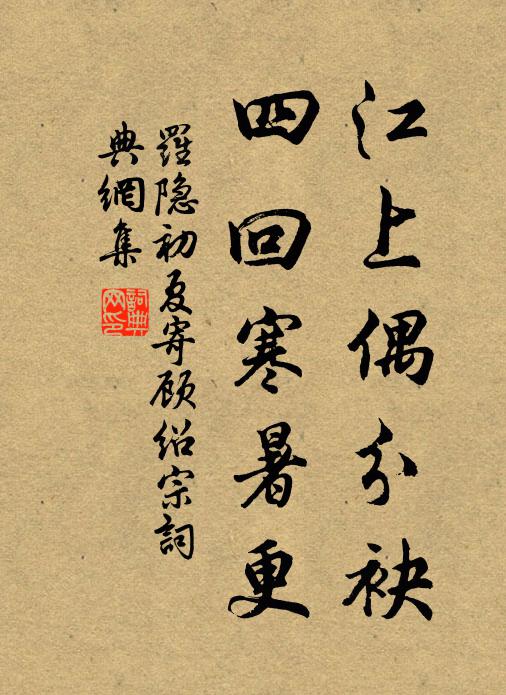 江上偶分袂
四回寒暑更
羅隐初夏寄顾绍宗詞
典網集
詞典
网印